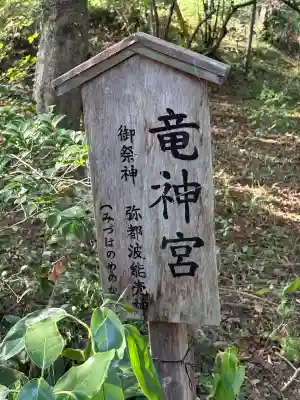 竜神宮
御祭神 弥都波能売神
(みづはのめの